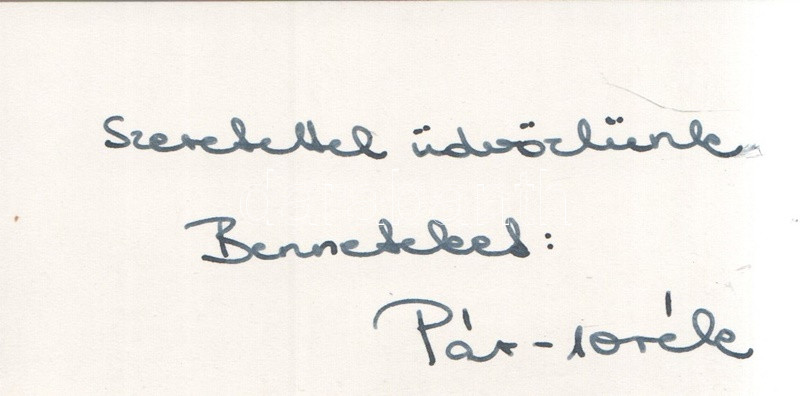 Szeretettel üdvözlünk
Benneteket:
Pár-10rék